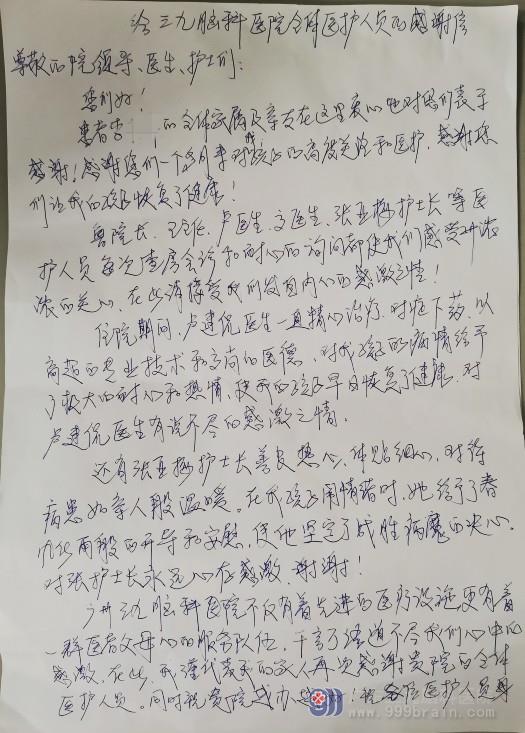 给三九脑科医院全体医护人员的感谢信
尊敬的院领导、医生、护士们:
您们好!
患者李 的全体家属及亲友在这里衷心地对您们表示
感谢!感谢您们一个多月来对孩子的高度关注和医护,感谢您
们让我的孩子恢复了健康!
鲁院长、王主任、卢医生、文医生、张亚梅护士长等医
护人员每次查房会诊和耐心的询问都使我们感受到浓
浓的关心,在此请接受我们发自内心的感激之情!
住院期间,卢建侃医生一直精心治疗,对症下药,以
高超的专业技术和高尚的医德,对我孩子的病情给予
了极大的耐心和热情,使我的孩子早日恢复了健康,对
卢建侃医生有说不尽的感激之情。
还有张亚梅护士长善良热心、体贴细心,对待
病患如亲人般温暖。在我孩子闹情绪时,她给予了春
风化雨般的开导和安慰,使他坚定了战胜病魔的决心。
对张护士长永远心存感激,谢谢!
广州三九脑科医院不仅有着先进的医疗设施更有着
一群医者父母心的服务队伍,千言万语道不尽我们心中的
感激,在此,我谨代表我的家人再次感谢贵院的全体
医护人员。同时祝贵院越办越好!祝各位医护人员身
www.999brain.com